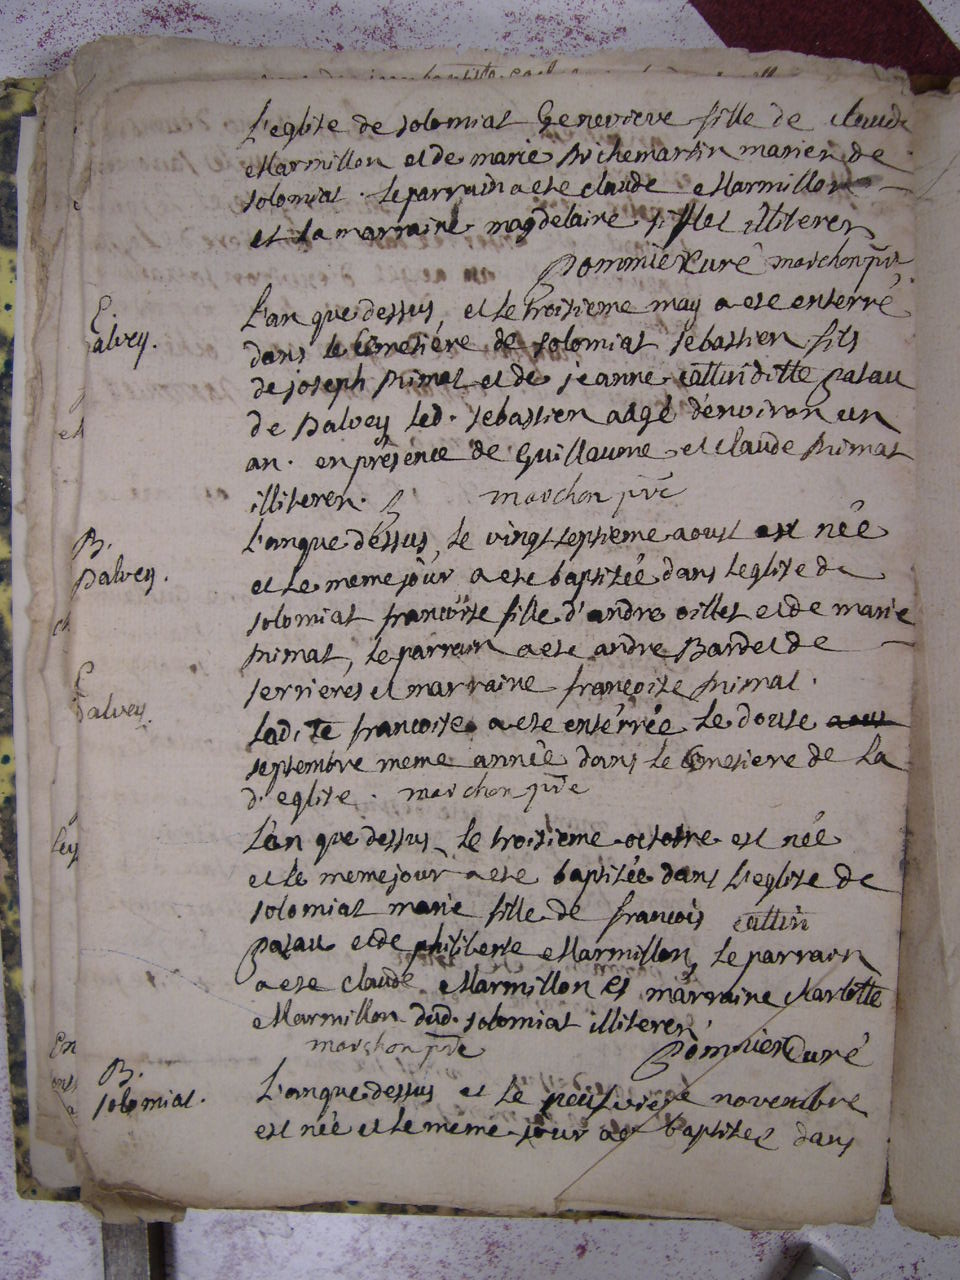 L'eglise de solomiat Genevieve fille de claude
Marmillon et de marie Michemartin mariez de
solomiat. le parrain a ete claude Marmillon
et la marraine magdelaine sifflet illiterez
Pommiez Curé marchon ptre
E.
Balvey.
L'an que dessus, et le troisieme may a ete enterré
dans le Cemetiére de solomiat sebastien fils
de joseph Primat et de jeanne cattin ditte pasau
de Balvey led. sebastien aagé d'environ un
an. en présence de Guillaume et claude Primat
illiterez. marchon ptre
B.
Balvey.
L'an que dessus, le vingt septieme aoust est née
et le meme jour a ete baptisée dans l'eglise de
solomiat francoise fille d'andre oillet et de marie
Primat, le parrain a ete andre Bardet de
serrieres et marraine francoise Primat.
E
Balvey.
Ladite francoise a ete enterrée le douse aoust
septembre meme année dans le Cemetiere de la
d. eglise. marchon ptre
L'an que dessus, le troisieme octobre est née
et le meme jour a ete baptisée dans L'eglise de
solomiat marie fille de francois cattin
pasau et de philiberte Marmillon, le parrain
a ete claude Marmillon et marraine Marlotte
Marmillon dud. solomiat illiterez.
marchon ptre Pommiez Curé
B.
solomiat.
L'an que dessus et le neufvieme novembre
est née et le meme jour a ete baptisee dans